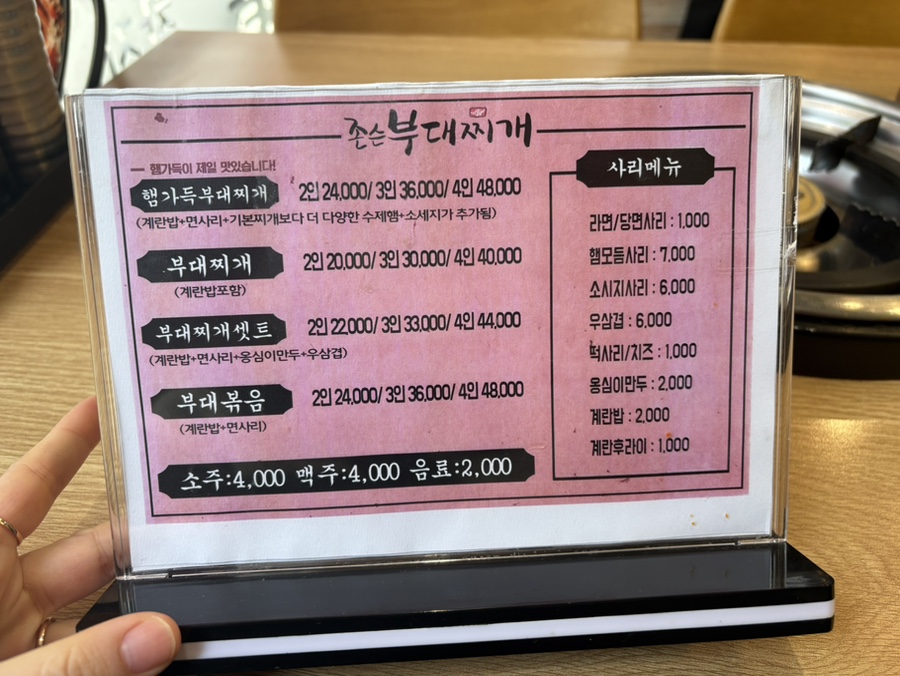 존슨부대찌개
햄가득이 제일 맛있습니다!
햄가득부대찌개 2인 24,000/ 3인 36,000/ 4인 48,000
(계란밥+면사리+기본찌개보다 더 다양한 수제햄+소세지가 추가됨)
부대찌개 2인 20,000/ 3인 30,000/ 4인 40,000
(계란밥포함)
부대찌개셋트 2인 22,000/ 3인 33,000/ 4인 44,000
(계란밥+면사리+옹심이만두+우삼겹)
부대볶음 2인 24,000/ 3인 36,000/ 4인 48,000
(계란밥+면사리)
소주:4,000 맥주:4,000 음료:2,000
사리메뉴
라면/당면사리 : 1,000
햄모듬사리 : 7,000
소시지사리 : 6,000
우삼겹 : 6,000
떡사리/치즈 : 1,000
옹심이만두 : 2,000
계란밥 : 2,000
계란후라이 : 1,000